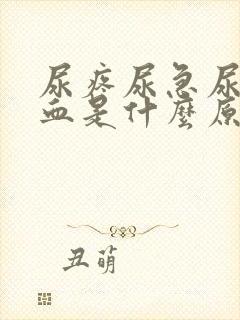 尿疼尿急尿
血是什麼原
丑萌